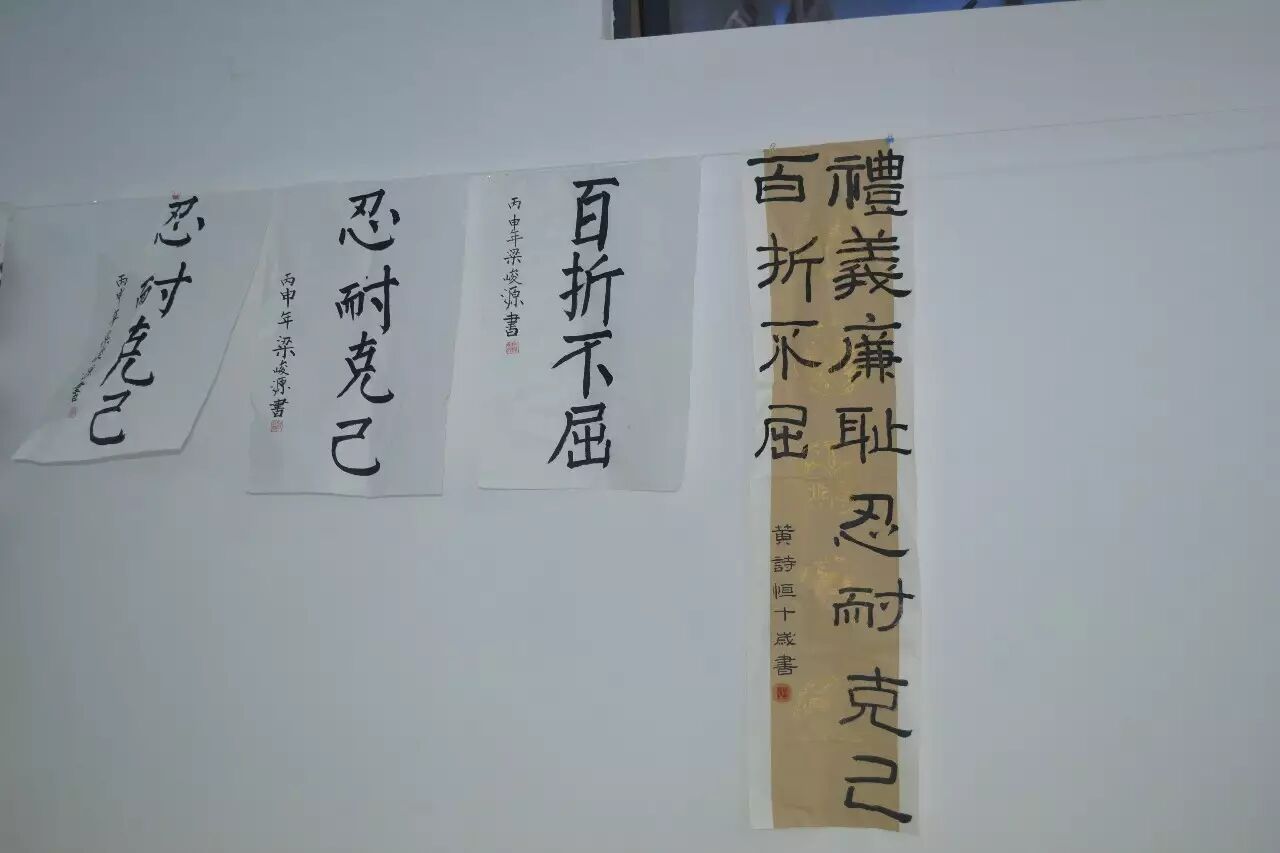 禮義廉耻忍耐克己
百折不屈
黄詩恒十歲書
百折不屈
丙申年梁峻源書
忍耐克己
丙申年梁峻源書
忍耐克己
丙申年梁峻源書